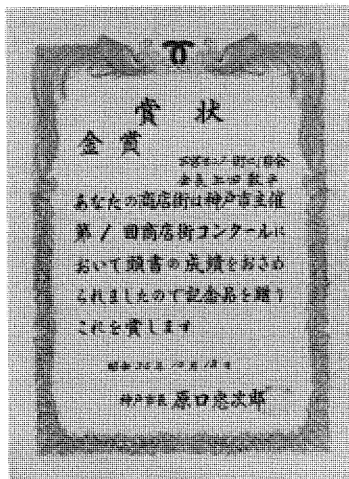 賞状
金賞
会長
あなたの商店街は神戸市主催
第1回商店街コンクールに
おいて頭書の成績をおさめ
られましたので記念品を贈り
これを賞します
昭和 年 月 日
神戸市長 原口忠次郎